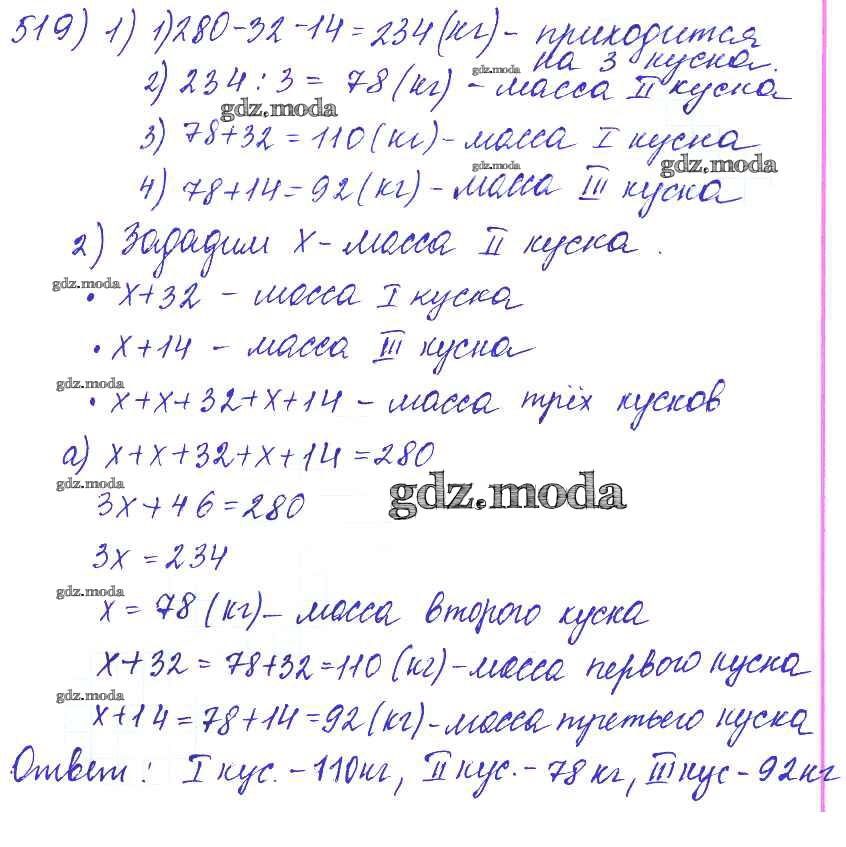 519) 1) 1) 280-32-14=234(кг)- приходится
на 3 куска.
2) 234:3= 78(кг) - масса II куска
gdz.moda
gdz.moda
3) 78+32=110(кг)- масса I куска
gdz.moda
gdz.moda
4) 78+14=92(кг)- масса III куска
2) Зададим х-масса II куска.
gdz.moda
• х+32 - масса I куска
• х+14 - масса III куска
gdz.moda
• х+х+32+х+14 - масса трёх кусков
а) х+х+32+х+14=280
gdz.moda
gdz.moda
3х+46=280
3х=234
gdz.moda
х=78(кг)- масса второго куска
х+32=78+32=110(кг)-масса первого куска
gdz.moda
х+14=78+14=92(кг)-масса третьего куска
Ответ: I кус.-110кг, II кус.-78кг, III кус-92кг